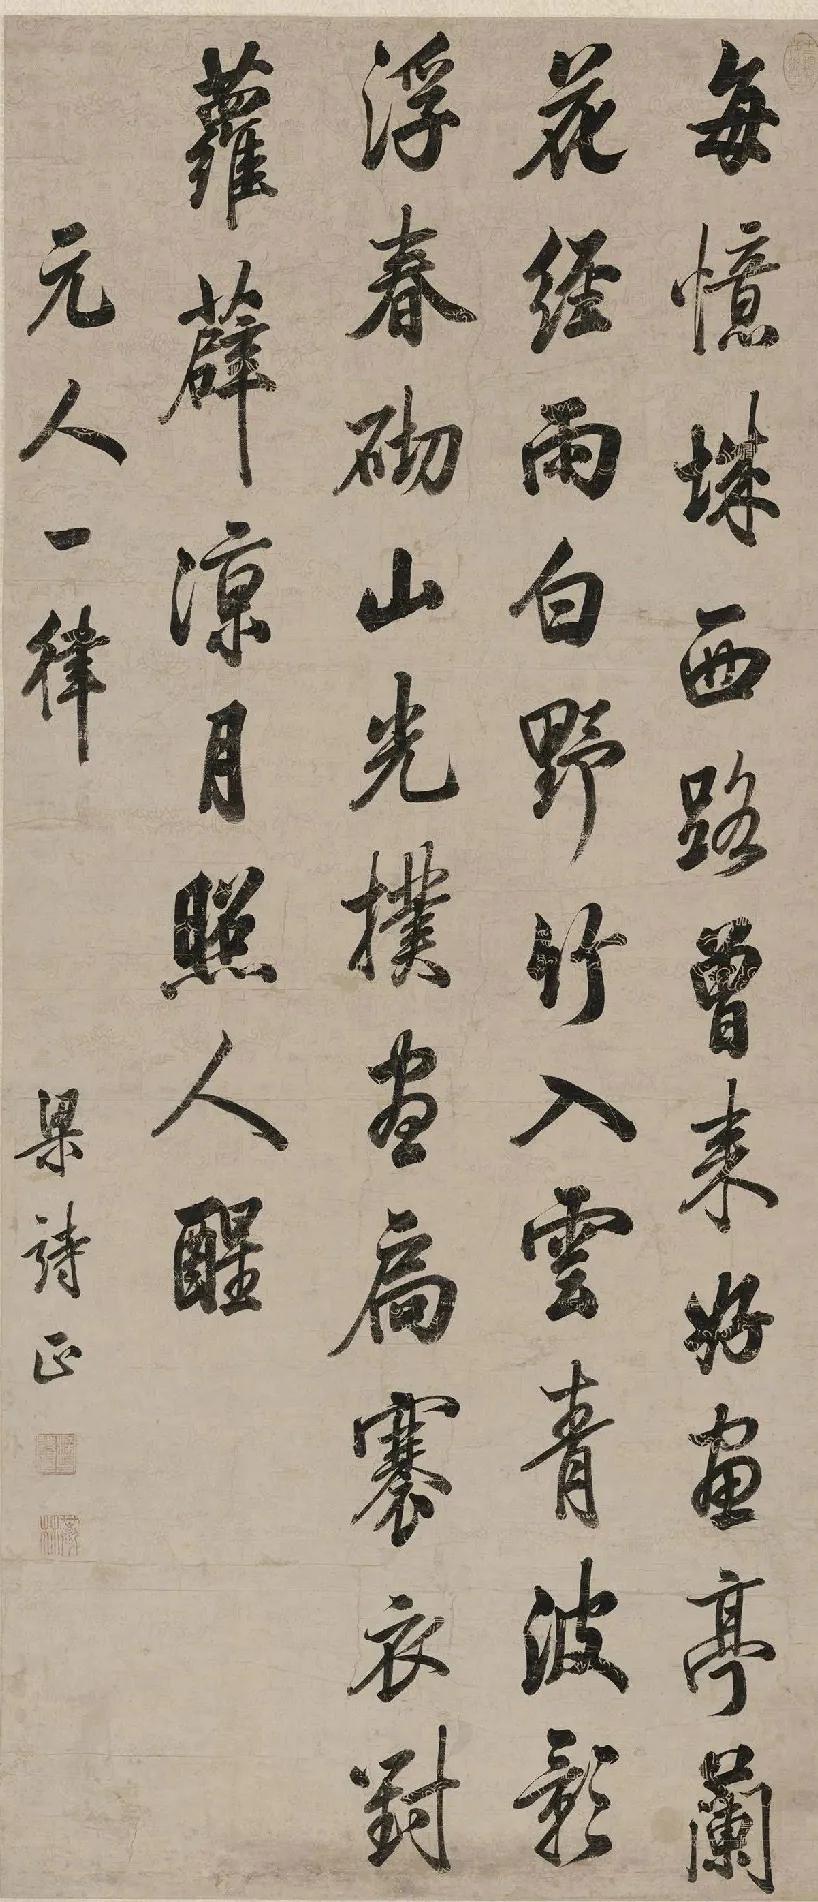 每憶城西路曾来好画亭蘭
花經雨白野竹入雲青波影
浮春砌山光撲画扃褰衣對
蘿薜涼月照人醒
元人一律
梁詩正